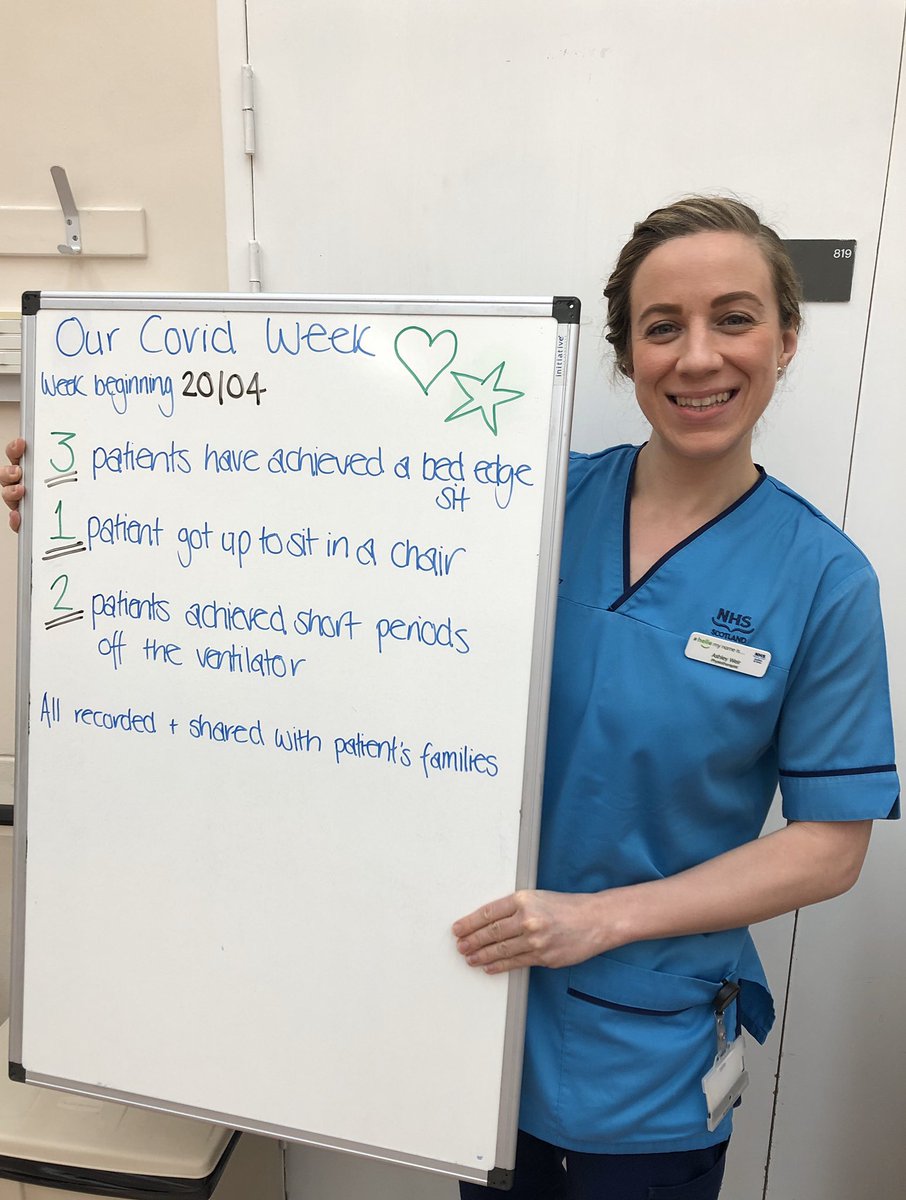 819
initiative
Our Covid Week
Week beginning 20/04
3 patients have achieved a bed edge
sit
1 patient got up to sit in a chair
2 patients achieved short periods
off the ventilator
All recorded + shared with patient's families
NHS
SCOTLAND
hello my name is...
Ashley Weir
Physiotherapist
NHS